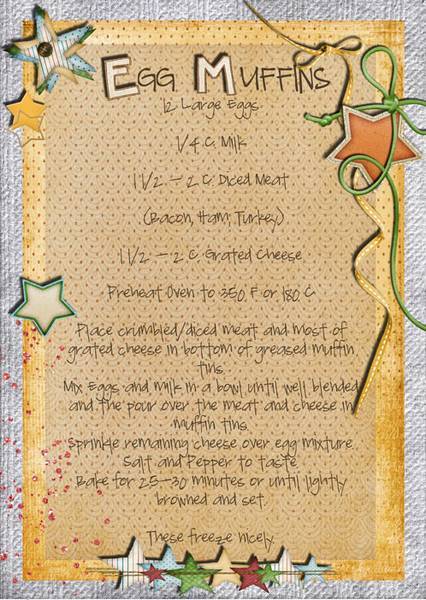 Egg Muffins
12 Large Eggs
1/4 C. Milk
1 1/2 - 2 C. Diced Meat
(Bacon, Ham, Turkey)
1 1/2 - 2 C. Grated Cheese
Preheat Oven to 350 F or 180 C
Place crumbled/diced meat and most of
grated cheese in bottom of greased muffin
tins.
Mix Eggs and milk in a bowl until well blended
and the pour over the meat and cheese in
muffin tins.
Sprinkle remaining cheese over egg mixture.
Salt and Pepper to taste
Bake for 25-30 minutes or until lightly
browned and set.
These freeze nicely.